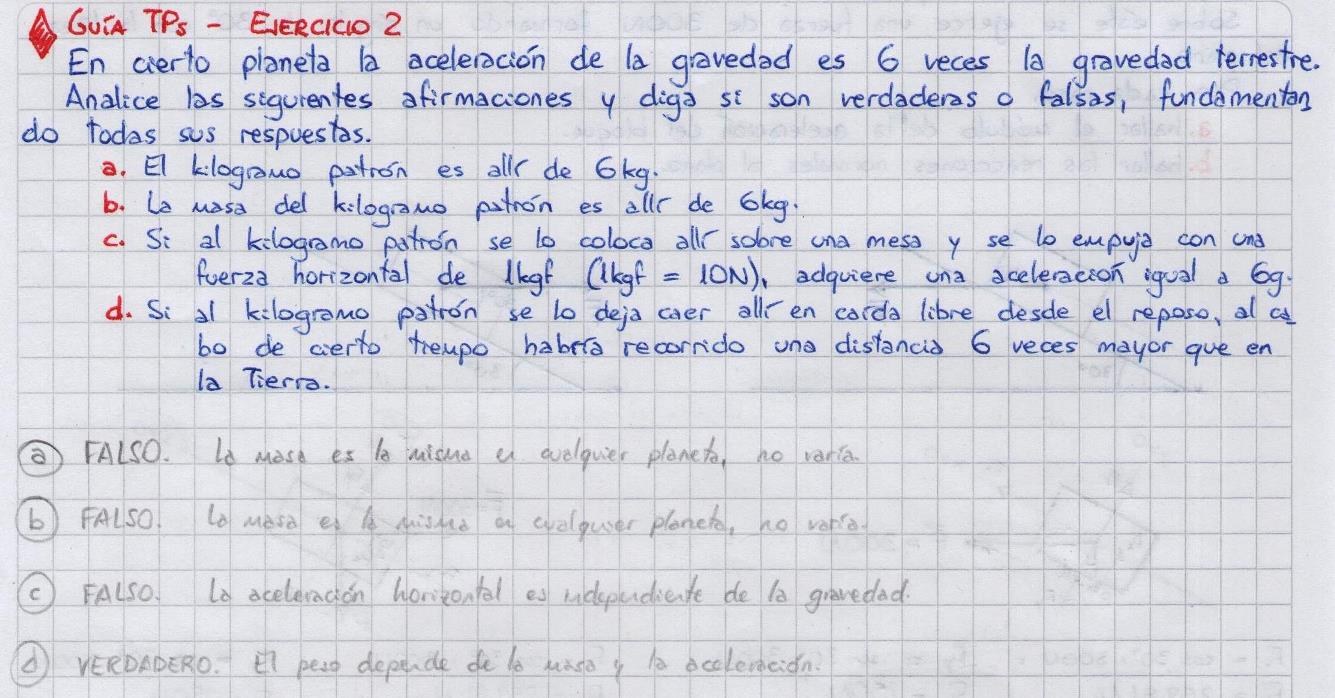 GUÍA TPs - EJERCICIO 2
En cierto planeta la aceleración de la gravedad es 6 veces la gravedad terrestre.
Analice las siguientes afirmaciones y diga si son verdaderas o falsas, fundamentan
do todas sus respuestas.
a. El kilogramo patrón es allí de 6kg.
b. La masa del kilogramo patrón es allí de 6kg.
c. Si al kilogramo patrón se lo coloca allí sobre una mesa y se lo empuja con una
fuerza horizontal de 1kgf (1kgf = 10N), adquiere una aceleración igual a 6g.
d. Si al kilogramo patrón se lo deja caer allí en caída libre desde el reposo, al ca
bo de cierto tiempo habría recorrido una distancia 6 veces mayor que en
la Tierra.
a FALSO. La masa es la misma en cualquier planeta, no varía.
b FALSO. La masa es la misma en cualquier planeta, no varía.
c FALSO. La aceleración horizontal es independiente de la gravedad.
d VERDADERO. El peso depende de la masa y la aceleración.